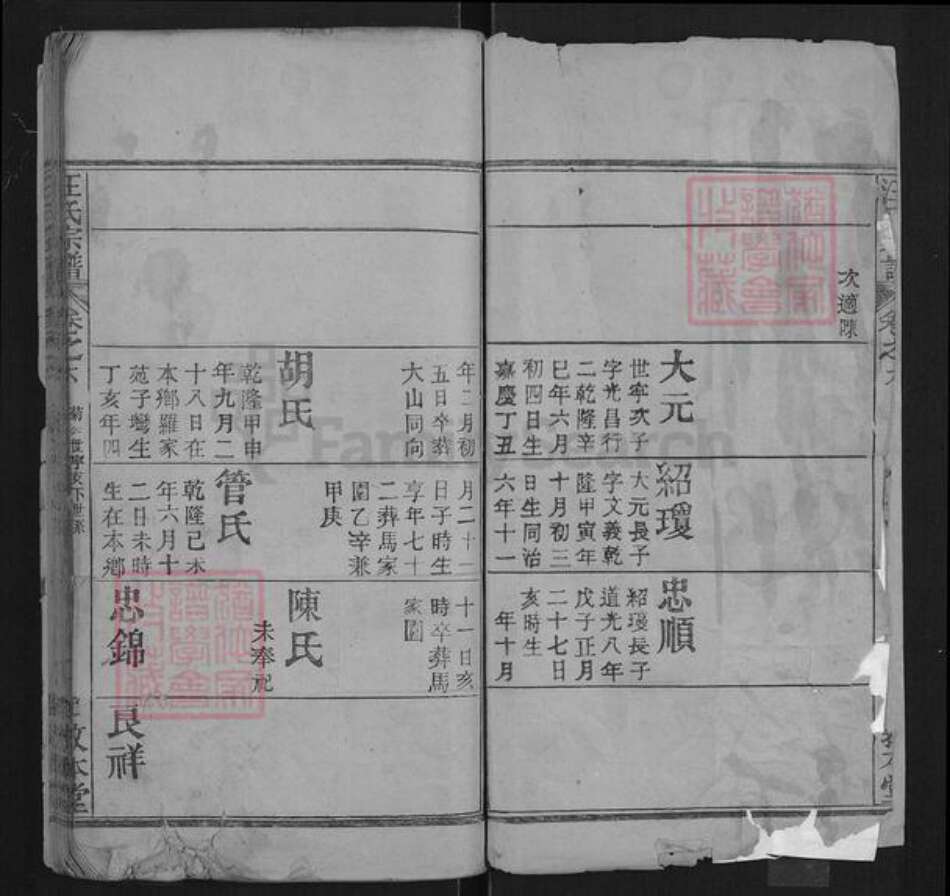 次適陳
大元
世寧次子
字光昌行
二乾隆辛
巳年六月
初四日生
嘉慶丁丑
年二月初
五日卒葬
大山同向
胡氏
乾隆甲申
年九月二
十八日在
本鄉羅家
苑子灣生
丁亥年四
紹瓊
大元長子
字文義乾
隆甲寅年
十月初三
日生同治
六年十一
月二十一
日子時生
享年七十
二葬馬家
園乙辛兼
甲庚
管氏
乾隆己未
年六月十
二日未時
生在本鄉
忠順
紹瓊長子
道光八年
戊子正月
二十七日
亥時生
年十月
十一日亥
時卒葬馬
家園
陳氏
未奉祀
忠錦
良祥
汪氏宗譜
卷之六
世寧
敦本堂
FamilySearch